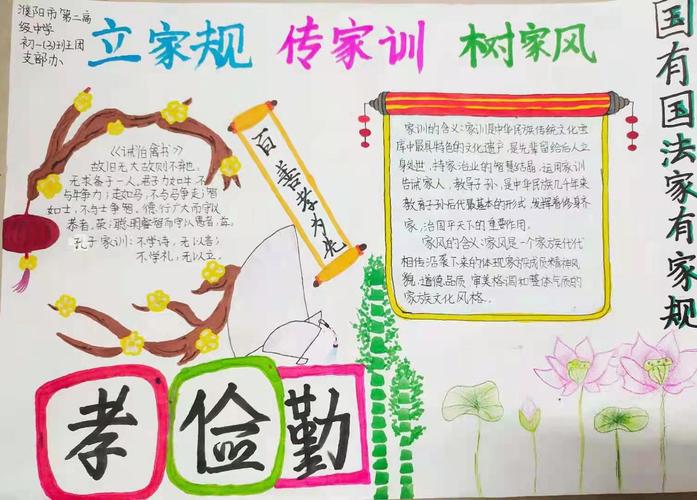 濮阳市第二高
级中学
初一(3)班团
支部办
立家规 传家训 树家风
国有国法家有家规
《诫伯禽书》
故旧无大故则不弃也,
无求备于一人。君子力如牛,不
与牛争力;走如马,不与马争走;智
如士,不与士争智。德行广大而守以
恭者,荣;聪明睿智而守以愚者,益。
孔子家训:不学诗,无以言;
不学礼,无以立。
百善孝为先
家训的含义:家训是中华民族传统文化宝
库中最具特色的文化遗产,是先辈留给后人立
身处世,持家治业的智慧结晶,运用家训
告诫家人,教导子孙,是中华民族几千年来
教育子孙后代最基本的形式,发挥着修身齐
家,治国平天下的重要作用。
家风的含义:家风是一个家族代代
相传沿袭下来的体现家族成员精神风
貌,道德品质,审美格调和整体气质的
家族文化风格。
孝 俭 勤